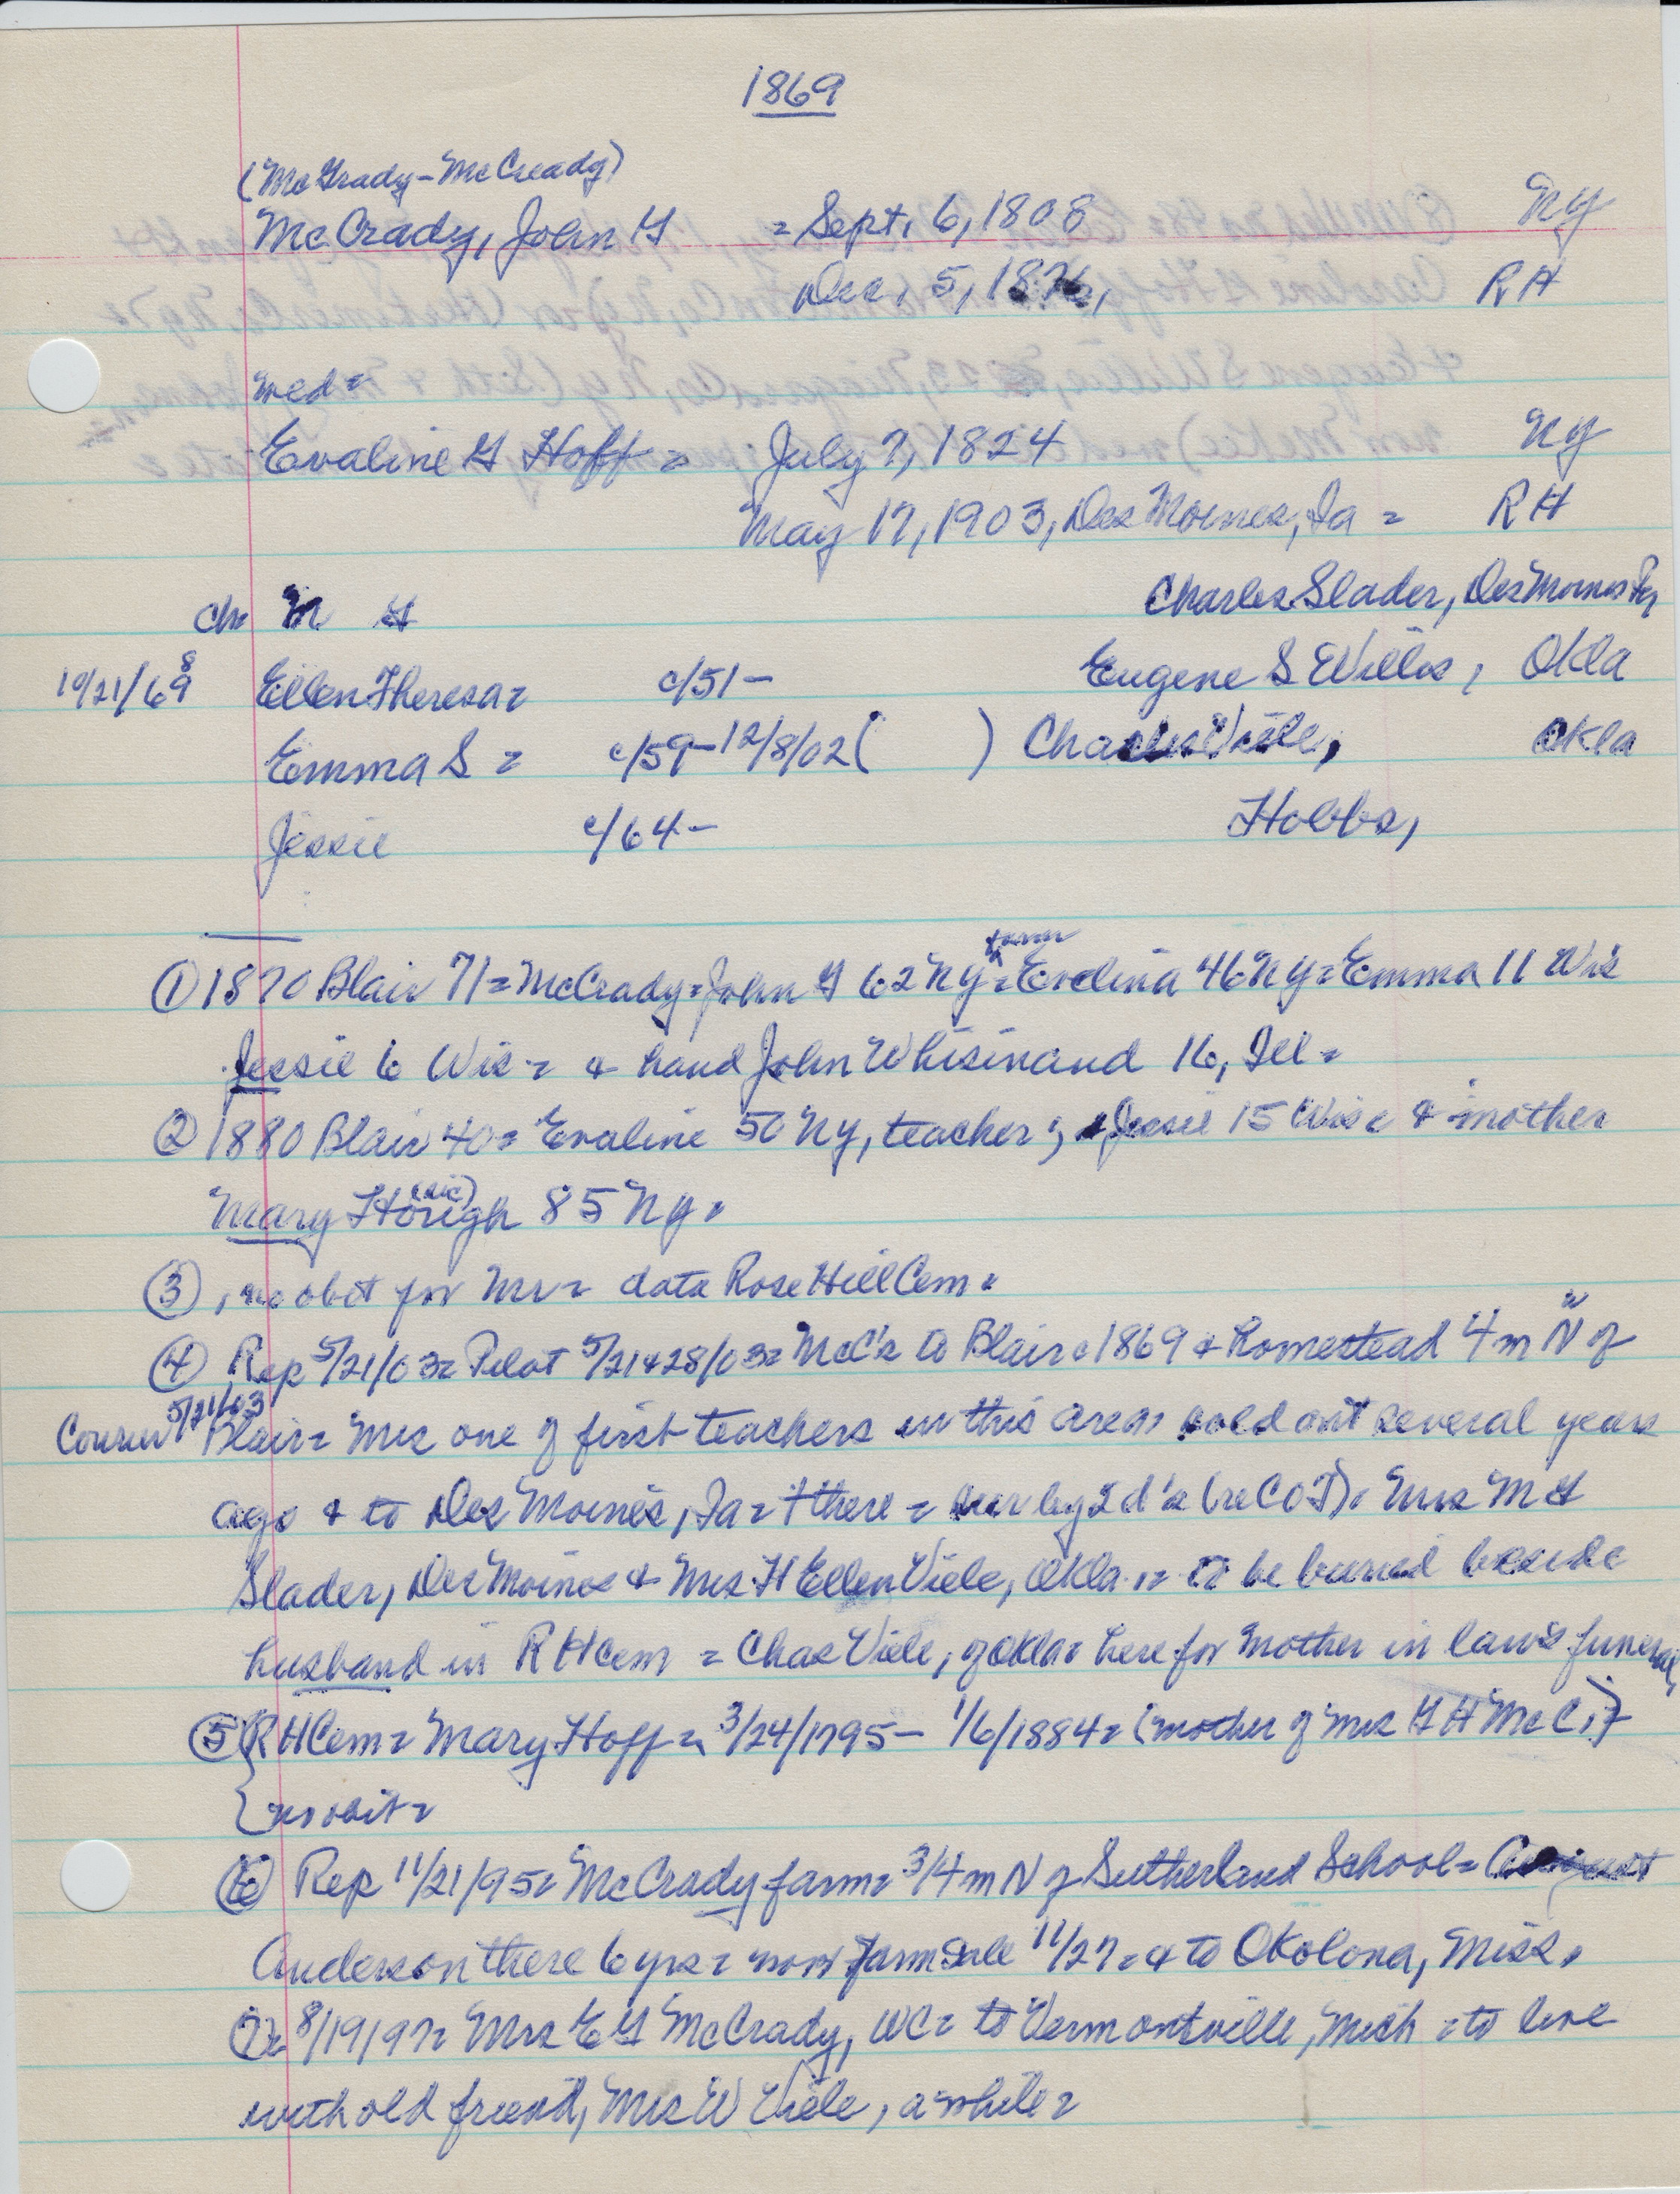 1869
(McGrady-McCready)
McCrady, John G = Sept. 6, 1808 NY
Dec. 5, 1876, RH
med=
Evaline G Hoff = July 7, 1824 NY
May 17, 1903, Des Moines, Ia = RH
ch= M G Charles Slader, Des Moines
10/21/69 8 Ellen Theresa= c/51- Eugene S Willis, Okla
Emma S = c/59-12/8/02 ( ) Charles Viele, Okla
Jessie c/64- Hobbs,
① 1870 Blair 71= McCrady=John G 62 NY= farm Evelina 46 NY= Emma 11 Wis
Jessie 6 Wis= & hand John Whisinand 16, Ill=
② 1880 Blair 40= Evaline 50 NY, teacher; Jessie 15 Wis & mother
Mary Hough (sic) 85 NY=
③ , no obit for Mr= data Rose Hill Cem=
④ Rep 5/21/03= Pilot 5/21&28/03= McC's to Blair c1869 & homestead 4 m N of
Courier 5/21/03 Blair= Mrs one of first teachers in this area, sold out several years
ago & to Des Moines, Ia= † there = sur by 2 d's (re COT), Mrs M G
Slader, Des Moines & Mrs H Ellen Viele, Okla.,= to be buried beside
husband in RH Cem = Chas Viele, of Okla= here for mother in law's funeral,
⑤ {RH Cem= Mary Hoff= 3/24/1795- 1/6/1884= (mother of Mrs G H McC,)
{ no obit=
⑥ Rep 11/21/95= McCrady farm= 3/4 m N of Sutherland School=
Anderson there 6 yrs= now farm sale 11/27= & to Okolona, Miss.
⑦= 8/19/97= Mrs E G McCrady, WC= to Vermontville, Mich = to live
with old friend, Mrs W Viele, awhile=